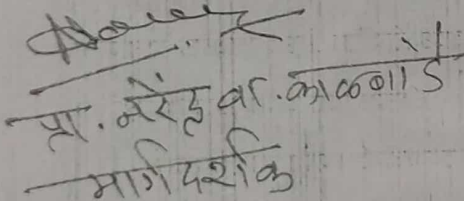 प्रा. नरेंद्र वा. काळबांडे
मार्गदर्शक